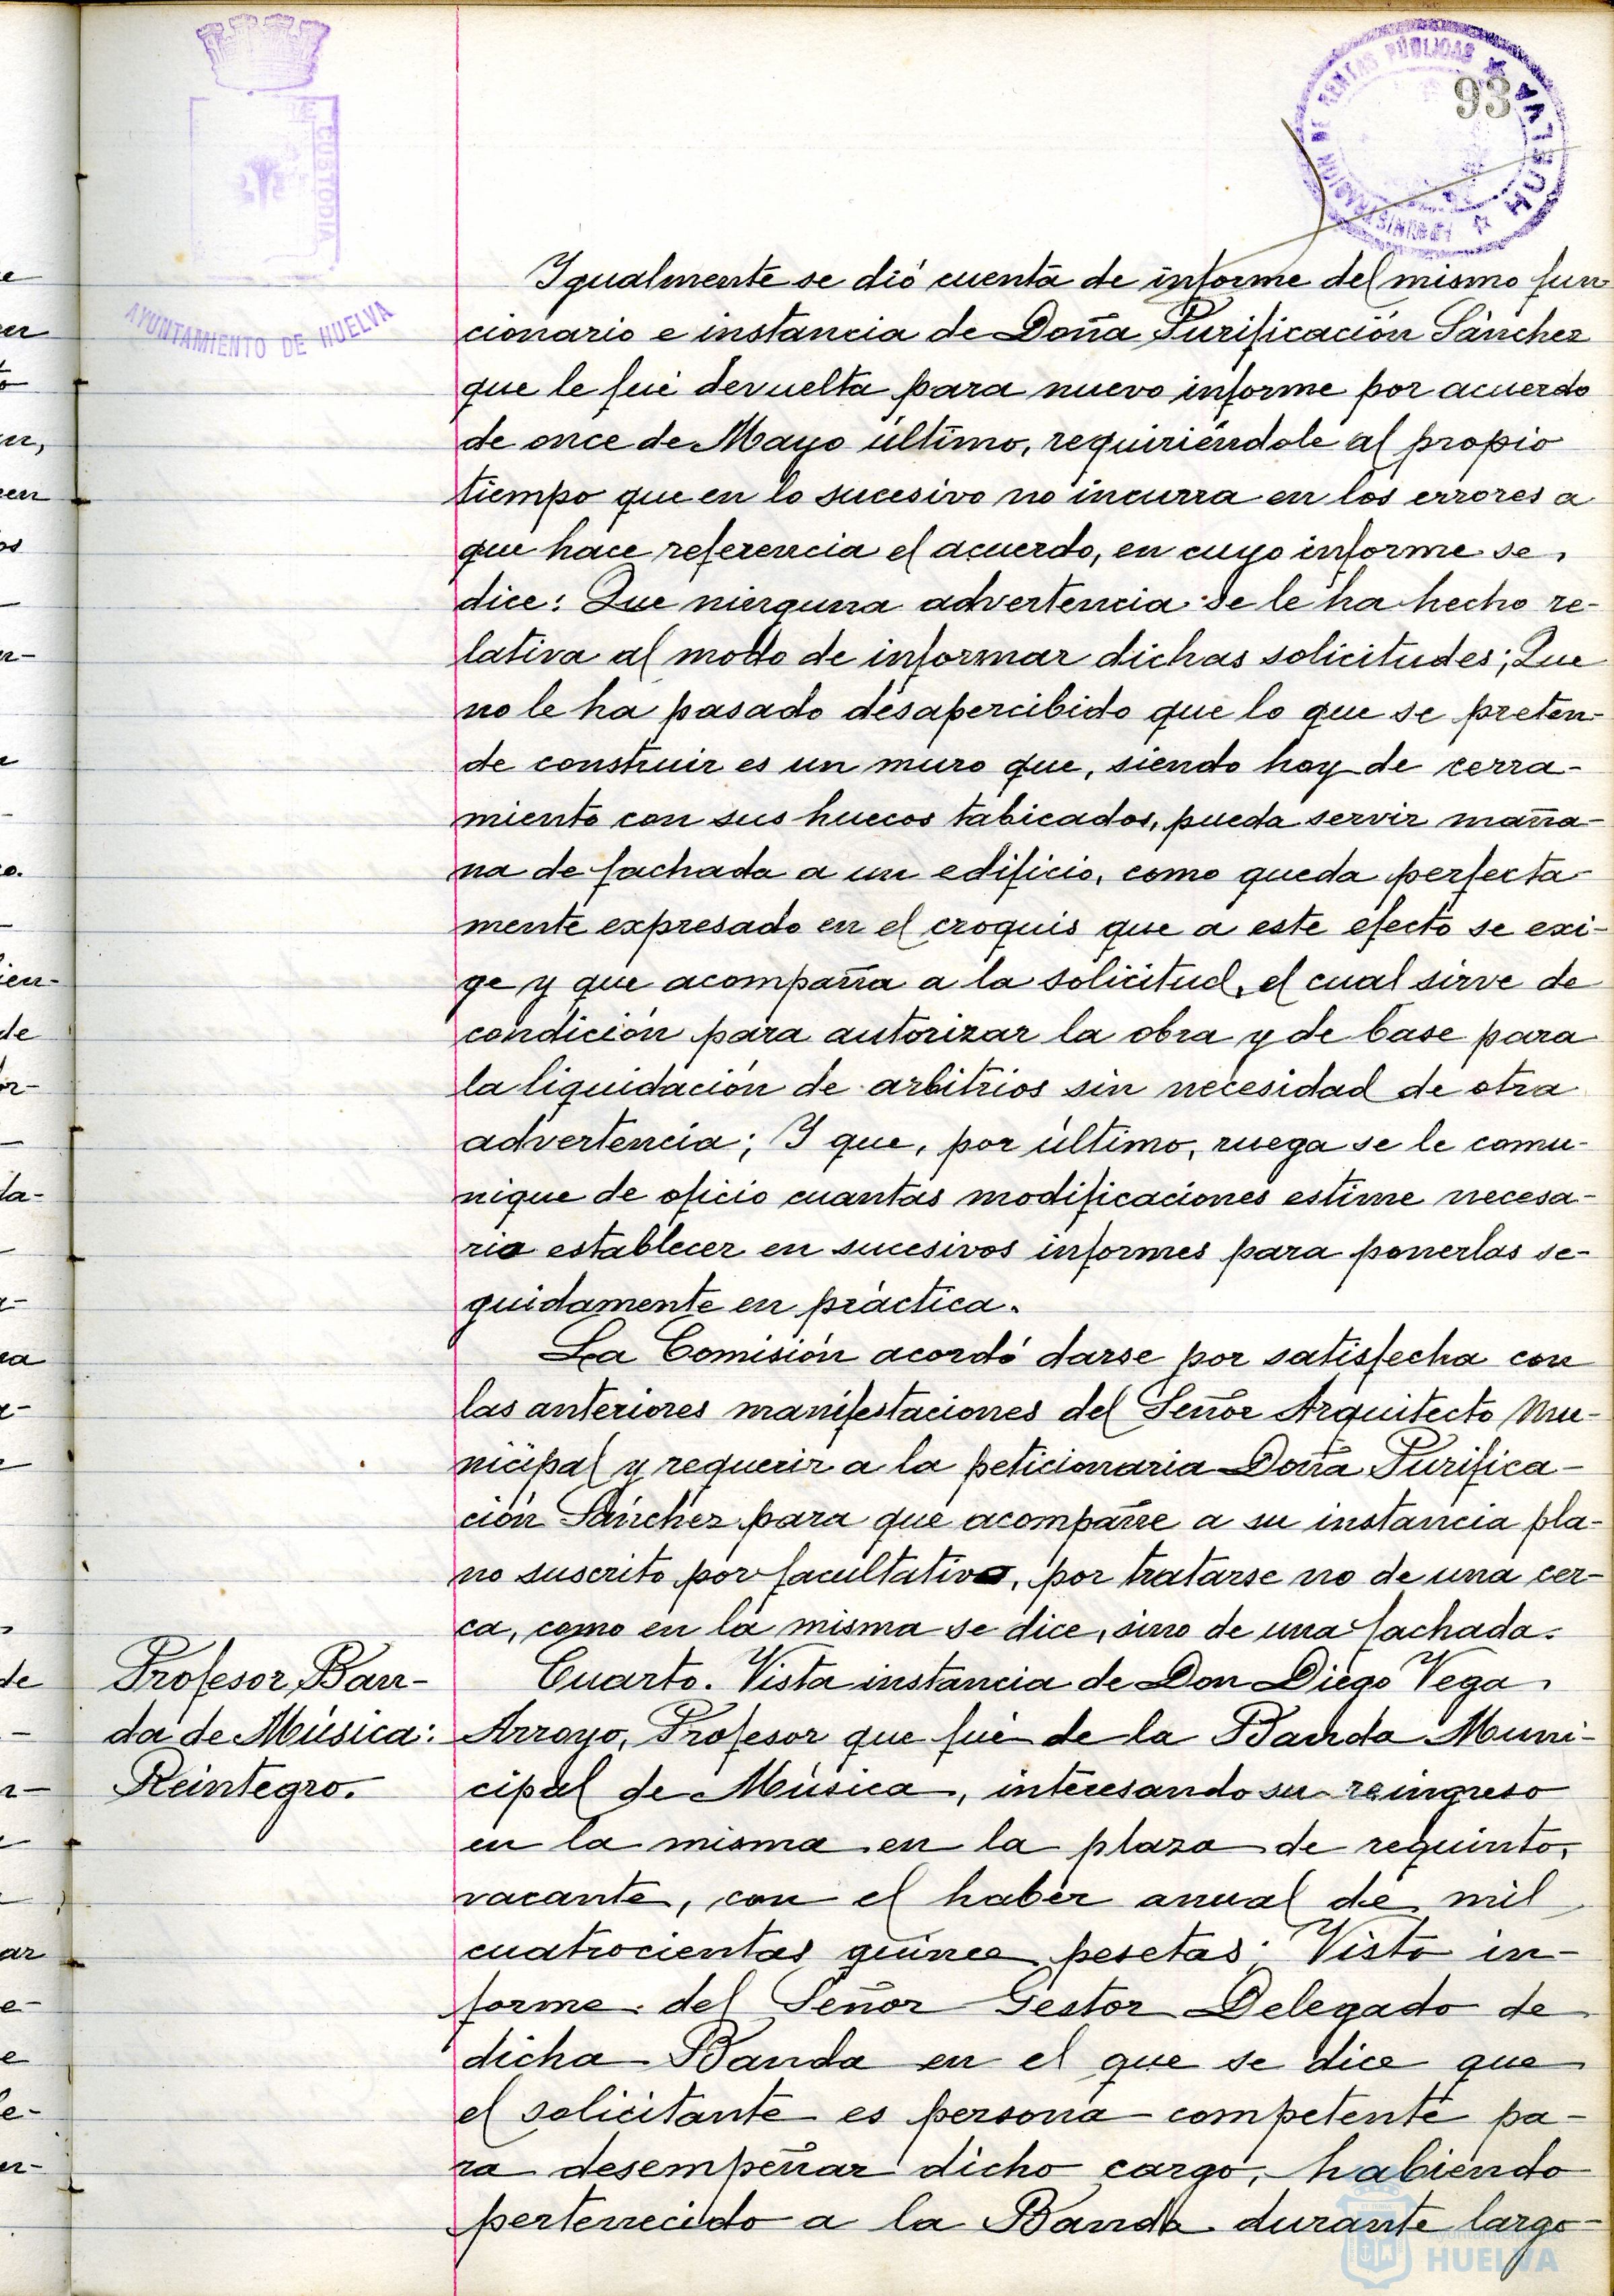 93
ADMINISTRACION DE RENTAS PÚBLICAS
HUELVA
CUSTODIA
AYUNTAMIENTO DE HUELVA
Igualmente se dió cuenta de informe del mismo fun
cionario e instancia de Doña Purificación Sánchez
que le fué devuelta para nuevo informe por acuerdo
de once de Mayo último, requiriéndole al propio
tiempo que en lo sucesivo no incurra en los errores a
que hace referencia el acuerdo, en cuyo informe se
dice: Que ninguna advertencia se le ha hecho re-
lativa al modo de informar dichas solicitudes; Que
no le ha pasado desapercibido que lo que se preten-
de construir es un muro que, siendo hoy de cerra-
miento con sus huecos tabicados, pueda servir maña-
na de fachada a un edificio, como queda perfecta-
mente expresado en el croquis que a este efecto se exi-
ge y que acompaña a la solicitud, el cual sirve de
condición para autorizar la obra y de base para
la liquidación de arbitrios sin necesidad de otra
advertencia; Y que, por último, ruega se le comu-
nique de oficio cuantas modificaciones estime necesa-
rio establecer en sucesivos informes para ponerlas se-
guidamente en práctica.
La Comisión acordó darse por satisfecha con
las anteriores manifestaciones del Señor Arquitecto Mu-
nicipal y requerir a la peticionaria Doña Purifica-
ción Sánchez para que acompañe a su instancia pla-
no suscrito por facultativo, por tratarse no de una cer-
ca, como en la misma se dice, sino de una fachada.
Profesor Ban-
da de Música:
Reintegro.
Cuarto. Vista instancia de Don Diego Vega
Arroyo, Profesor que fué de la Banda Muni-
cipal de Música, interesando su reingreso
en la misma en la plaza de requinto,
vacante, con el haber anual de mil
cuatrocientas quince pesetas; Visto in-
forme del Señor Gestor Delegado de
dicha Banda en el que se dice que
el solicitante es persona competente pa-
ra desempeñar dicho cargo, habiendo
pertenecido a la Banda durante largo-
HUELVA